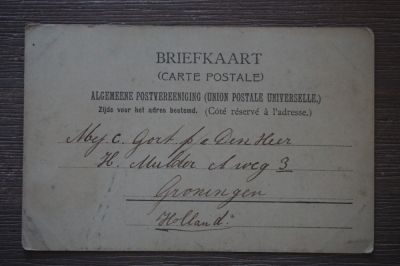 BRIEFKAART
(CARTE POSTALE)
ALGEMEENE POSTVEREENIGING (UNION POSTALE UNIVERSELLE.)
Zijde voor het adres bestemd. (Côté réservé à l'adresse.)
Mej. C. Gort p/a Den Heer
H. Mulder A weg 3
Groningen
Holland.